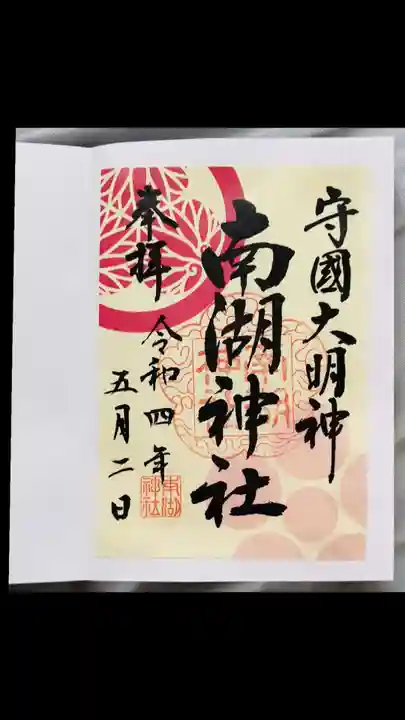 守國大明神
南湖神社
奉拝
令和四年
五月二日
南湖
神社